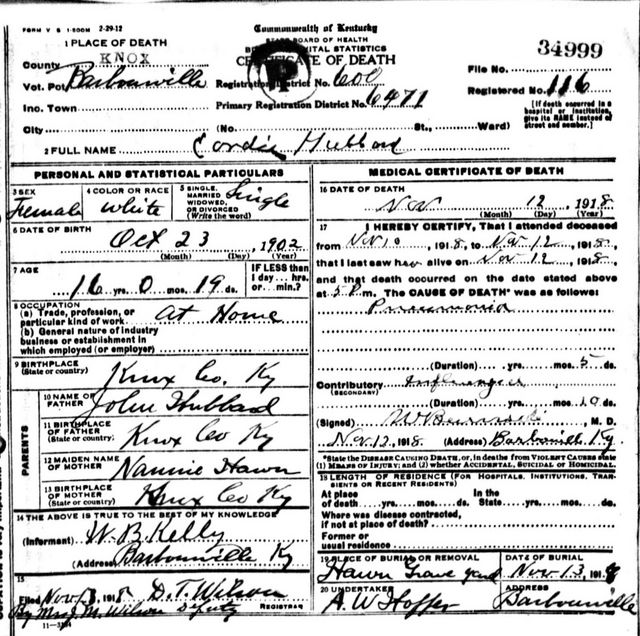 FORM V S 1-500M 2-29-12
Commonwealth of Kentucky
STATE BOARD OF HEALTH
VITAL STATISTICS
CERTIFICATE OF DEATH
34999
1 PLACE OF DEATH
County KNOX
File No.
Vot. Pct. Barbourville
Registration District No. 600
Registered No. 116
Inc. Town
Primary Registration District No. 6471
[If death occurred in a hospital or institution, give its NAME instead of street and number.]
City (No. St., Ward)
2 FULL NAME Cordie Hubbard
PERSONAL AND STATISTICAL PARTICULARS
3 SEX Female
4 COLOR OR RACE White
5 SINGLE, MARRIED, WIDOWED, OR DIVORCED (Write the word) Single
6 DATE OF BIRTH
Oct 23, 1902
(Month) (Day) (Year)
7 AGE
16 yrs. 0 mos. 19 ds.
IF LESS than 1 day... hrs. or min.?
8 OCCUPATION
(a) Trade, profession, or particular kind of work At Home
(b) General nature of industry business or establishment in which employed (or employer)
9 BIRTHPLACE (State or country) Knox Co. Ky
PARENTS
10 NAME OF FATHER John Hubbad
11 BIRTHPLACE OF FATHER (State or country) Knox Co Ky
12 MAIDEN NAME OF MOTHER Nannie Hawn
13 BIRTHPLACE OF MOTHER (State or country) Knox Co Ky
14 THE ABOVE IS TRUE TO THE BEST OF MY KNOWLEDGE
(Informant) W. B. Kelly
(Address) Barbourville Ky
15
Filed Nov 13, 1918 D. T. Wilson
REGISTRAR
By Mrs J. M. Wilson Deputy
MEDICAL CERTIFICATE OF DEATH
16 DATE OF DEATH
Nov 12, 1918
(Month) (Day) (Year)
17 I HEREBY CERTIFY, That I attended deceased
from Nov 10, 1918, to Nov 12, 1918,
that I last saw her alive on Nov 12, 1918,
and that death occurred on the date stated above
at 5 P.m. The CAUSE OF DEATH* was as follows:
Pneumonia
(Duration) yrs. mos. 5 ds.
Contributory Influenza
(SECONDARY)
(Duration) yrs. mos. 10 ds.
(Signed) M. D.
Nov 12, 1918 (Address) Barbourville Ky.
*State the DISEASE CAUSING DEATH, or, in deaths from VIOLENT CAUSES state
(1) MEANS OF INJURY; and (2) whether ACCIDENTAL, SUICIDAL OR HOMICIDAL.
18 LENGTH OF RESIDENCE (FOR HOSPITALS, INSTITUTIONS, TRANSIENTS OR RECENT RESIDENTS)
At place of death yrs. mos. ds. In the State yrs. mos. ds.
Where was disease contracted, if not at place of death?
Former or usual residence
19 PLACE OF BURIAL OR REMOVAL
Hawn Grave yard
DATE OF BURIAL
Nov 13, 1918
20 UNDERTAKER
A. W. Hopper
ADDRESS
Barbourville